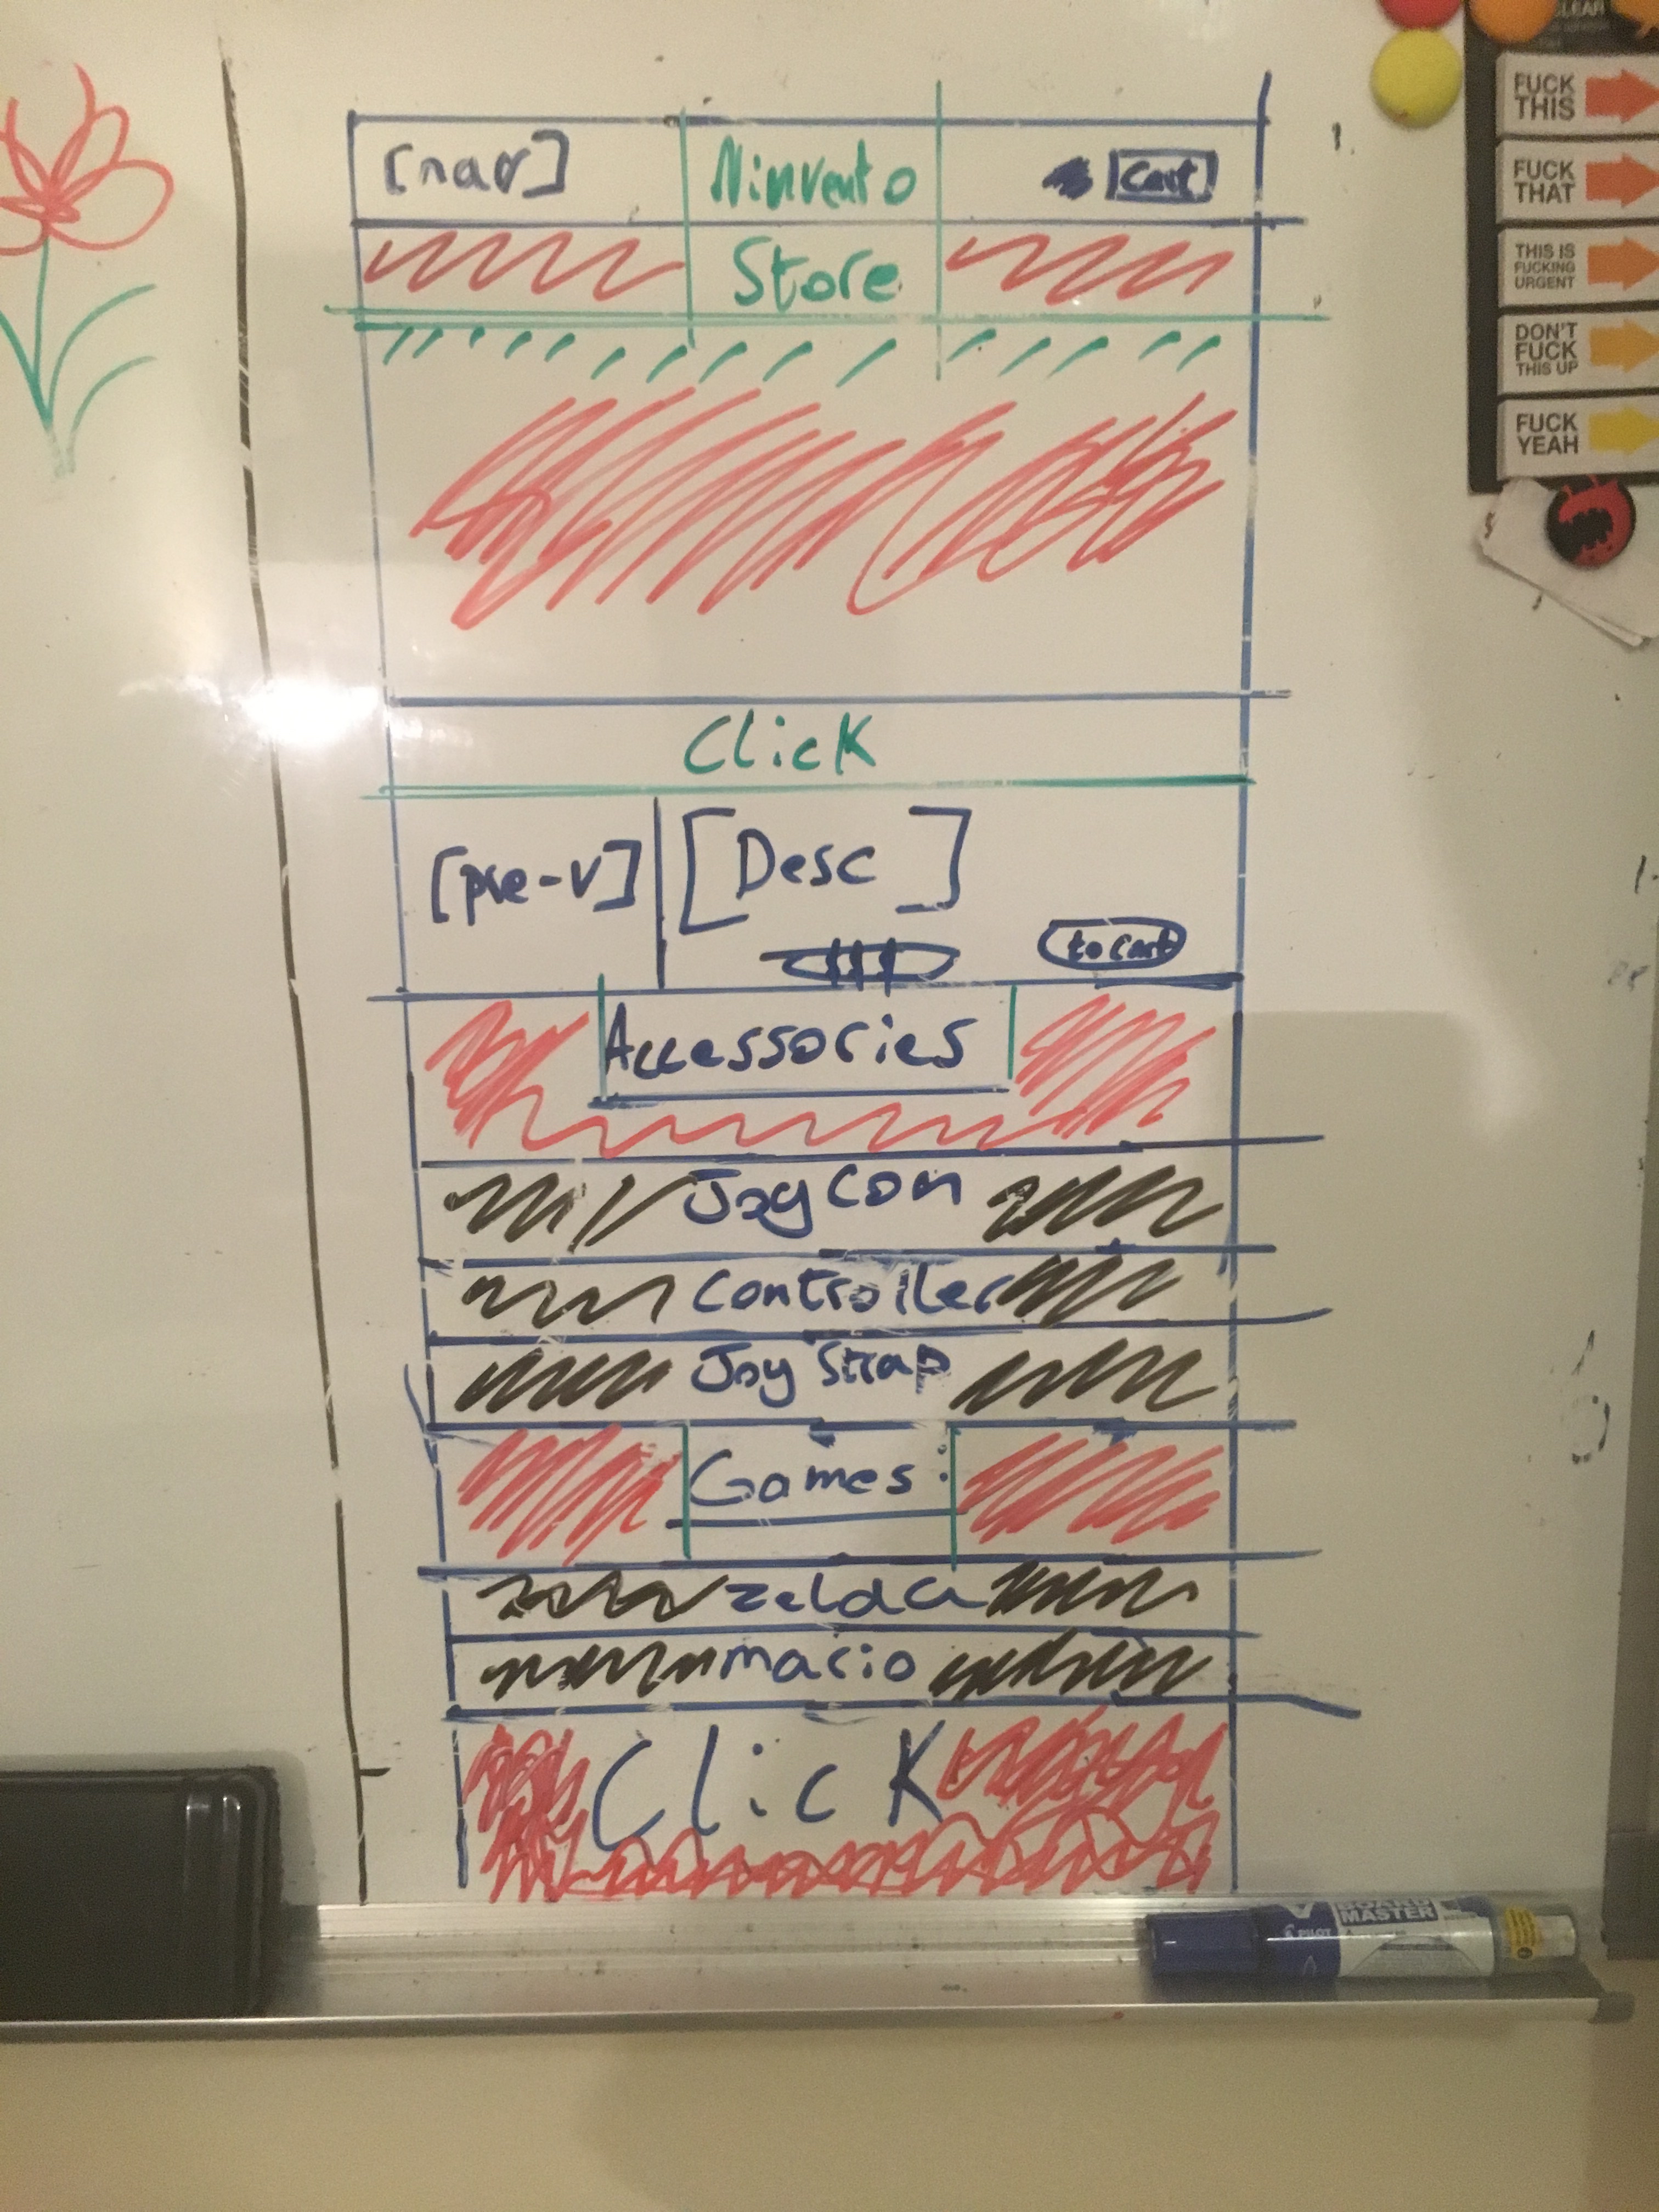 [nav] Ninvento Cart
Store
Click
[pre-v] [Desc]
to cart
Accessories
Joy Con
Controller
Joy Strap
Games:
Zelda
mario
Click
CLEAR
FUCK
THIS
FUCK
THAT
THIS IS
FUCKING
URGENT
DON'T
FUCK
THIS UP
FUCK
YEAH
V BOARD
MASTER
PILOT